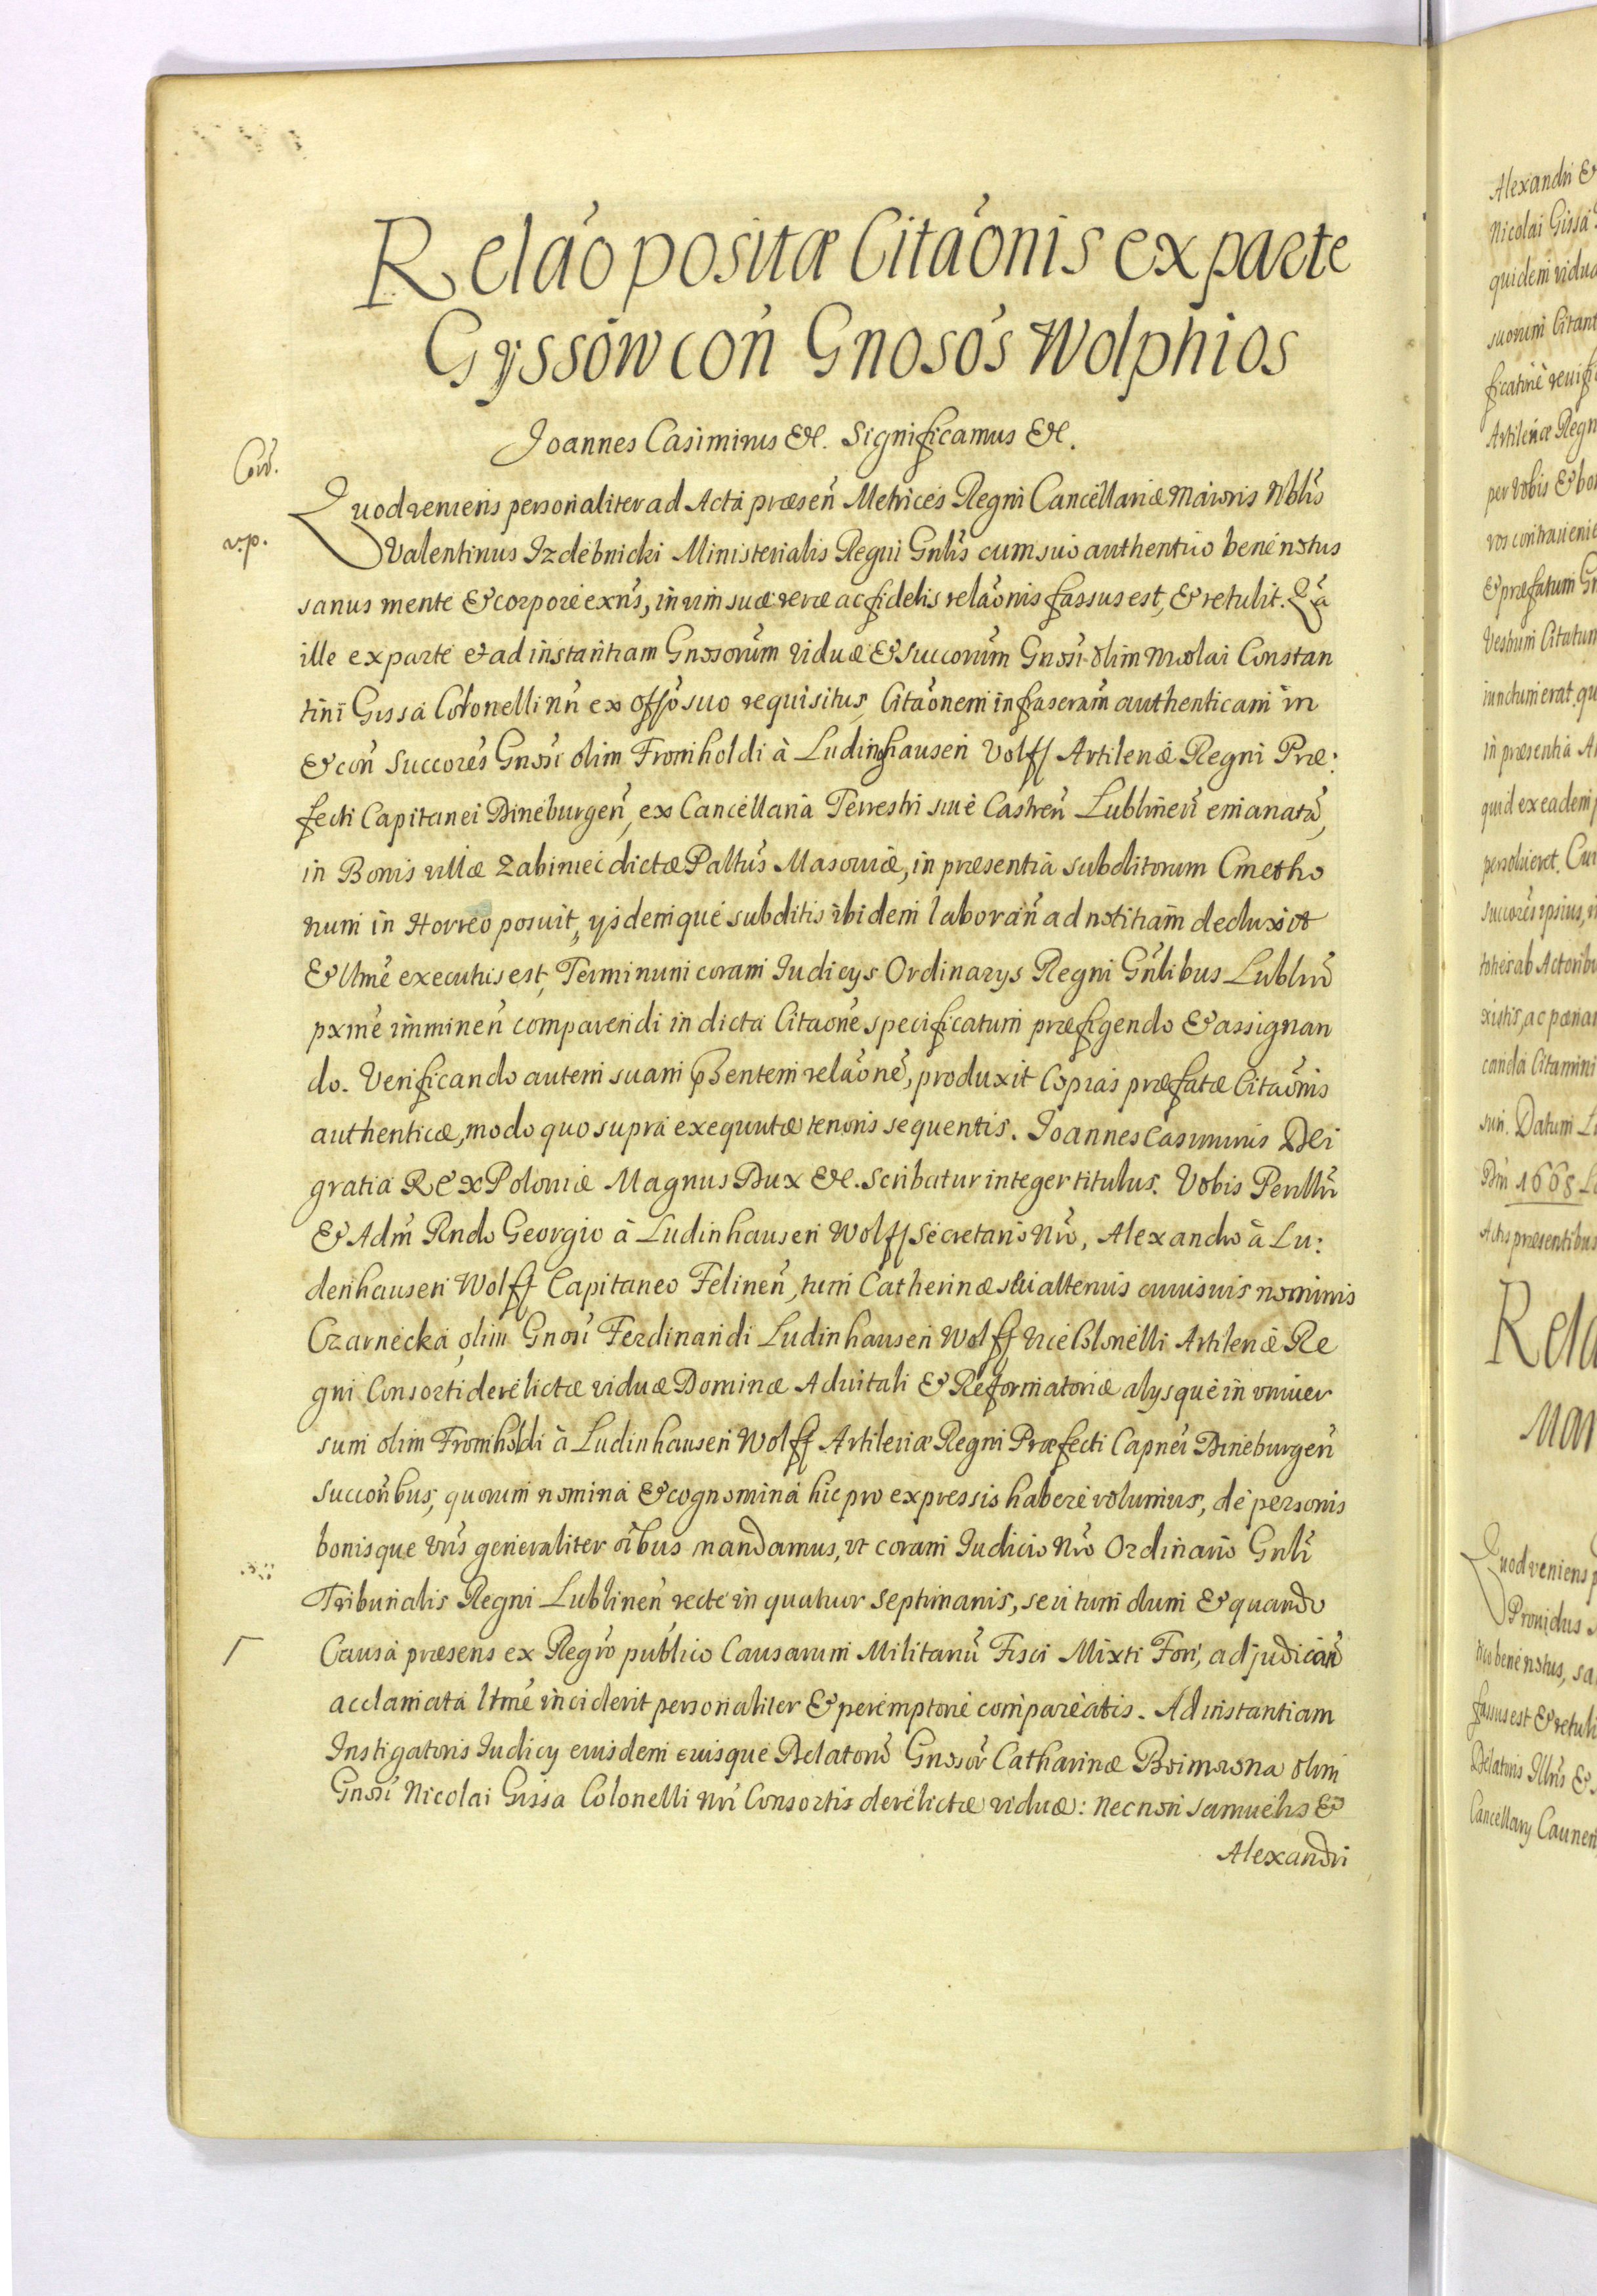 Relaó positæ Citaónis ex parte
Gyssów coń Gnosós Wolphios
Joannes Casimirus &c. Significamus &c.
Cor.
Quod veniens personaliter ad Acta præseń Metrices Regni Cancellariæ Maioris Nblis
v.p.
Valentinus Izdebnicki Ministerialis Regni Gnlis cum suo authentico bene notus
sanus mente & corpore exńs, in vim suæ veræ ac fidelis relaónis fassus est, & retulit. Qa
ille ex parte et ad instantiam Gnosorum viduæ & Succorum Gnosi olim Nicolai Constan
tini Gissa Colonelli nri ex offo suo requisitus, Citaónem infrascram authenticam in
& coń Succores Gnosi olim Fromholdi à Ludinghausen Volff Artileriæ Regni Præ:
fecti Capitanei Dineburgeń, ex Cancellaria Terrestri siue Castreń Lublineń emanatã,
in Bonis villæ Zabiniec dictæ Paltus Masouiæ, in præsentia subditorum Cmetho
num in Horreo posuit, ijsdemque subditis ibidem laborań ad notitiam deduxit
& Ltme executus est, Terminum coram Iudicijs Ordinarijs Regni Gnlibus Lubliń
pxme immineń comparendi in dicta Citaone specificatum præfigendo & assignan
do. Verificando autem suam pntem relaónẽ, produxit Copias præfatæ Citaónis
authenticæ, modo quo supra exequutæ tenoris sequentis. Joannes Casimirus Dei
gratia Rex Poloniæ Magnus Dux &c. scribatur integer titulus. Vobis Perillri
& Adm Rndo Georgio à Ludinhausen Wolff Secretario Nro, Alexandro à Lu:
denhausen Wolff Capitaneo Felineń, tum Catherinæ seu alterius cuiusuis nominis
Czarnecka olim Gnosi Ferdinandi Ludinhausen Wolff Vice Colonelli Artileriæ Re
gni Consorti derelictæ viduæ Dominæ Aduitali & Reformatoriæ alijsque in vniuer
sum olim Fromholdi à Ludinhausen Wolff Artileriæ Regni Præfecti Capnei Dineburgeń
succoribus, quorum nomina & cognomina hic pro expressis habere volumus, de personis
bonisque vris generaliter oibus mandamus, vt coram Iudicio Nro Ordinario Gnli
Tribunalis Regni Lublineń recte in quatuor septimanis, seu tum dum & quando
Causa præsens ex Regro publico Causarum Militariũ Fisci Mixti Fori, adjudicań
acclamata ltme inciderit personaliter & peremptorie compareatis. Ad instantiam
Instigatoris Iudicij eiusdem eiusque Delatorũ Gnosor Catharinæ olim
Gnosi Nicolai Gissa Colonelli nri Consortis derelictæ viduæ: necnon Samuelis &
Alexandri
Alexandri &
Nicolai Gissa
quidem vidua
suorum Citant
Artileriæ Regn
& præfatum Gn
Vestrum Citatum
iunctum erat, qu
in præsentia A
quid ex eadem
persolueret. Cu
succores ipsius,
toties ab Actoribu
canda Citamini
sui. Datum L
Dni 1668 L
Actis præsentibus
Rela
Mar
Quod veniens p
Prouidus
tico bene notus, sa
fassus est & retuli
Delatoris Illris &
Cancellarij Caunen